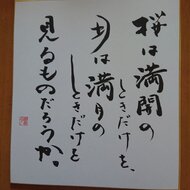 桜は満開の
ときだけを、
月は満月の
ときだけを
見るものだろうか。